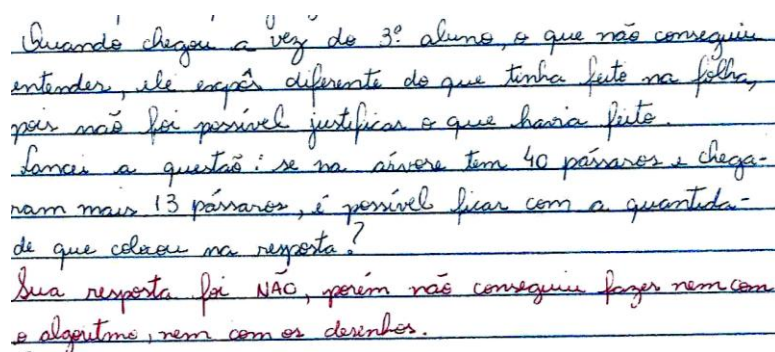 Quando chegou a vez do 3º aluno, o que não conseguiu
entender, ele expôs diferente do que tinha feito na folha,
pois não foi possível justificar o que havia feito.
Lancei a questão: se na árvore tem 40 pássaros e chega-
ram mais 13 pássaros, é possível ficar com a quantida-
de que colocou na resposta?
Sua resposta foi NÃO, porém não conseguiu fazer nem com
o algoritmo, nem com os desenhos.